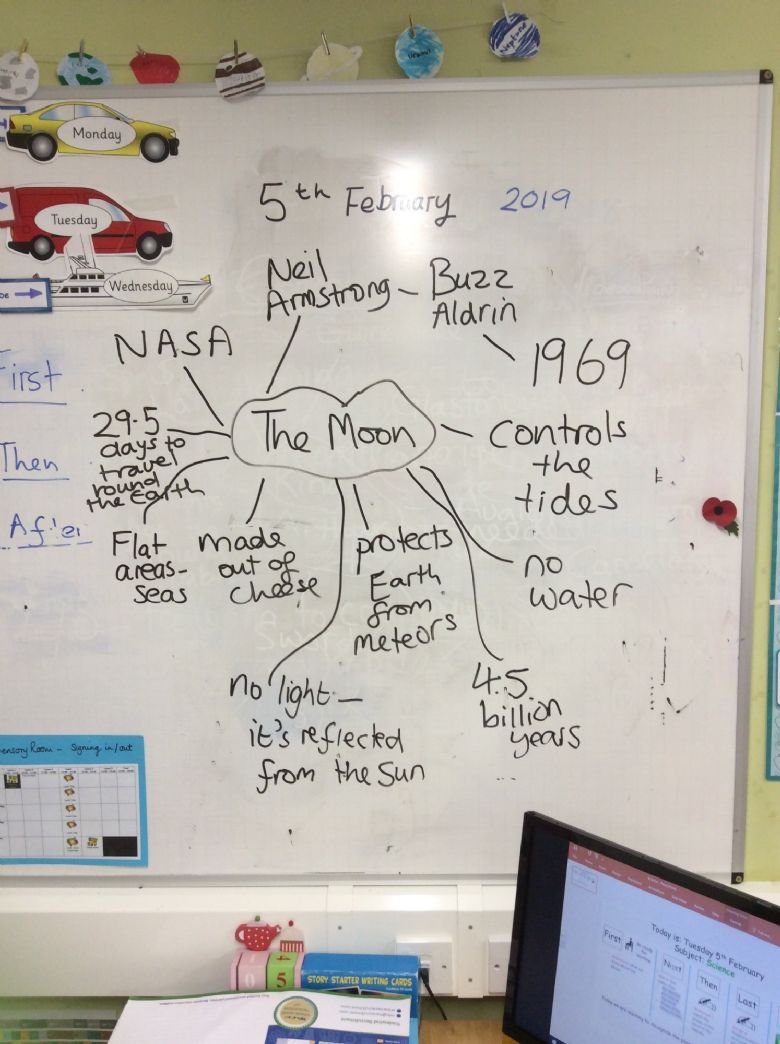 Neptune
Monday
Tuesday
Wednesday
5th February 2019
Neil
Armstrong – Buzz
Aldrin
1969
NASA
The Moon
29.5
days to
travel
round
the Earth
controls
the
tides
Flat
areas–
seas
made
out of
cheese
protects
Earth
from
meteors
no
water
no light –
it's reflected
from the Sun
4.5
billion
years
First
Then
Sensory Room – Signing in/out
4 5
STORY STARTER WRITING CARDS
Today is: Tuesday 5th February
Subject: Science
First
Next
Then
Last